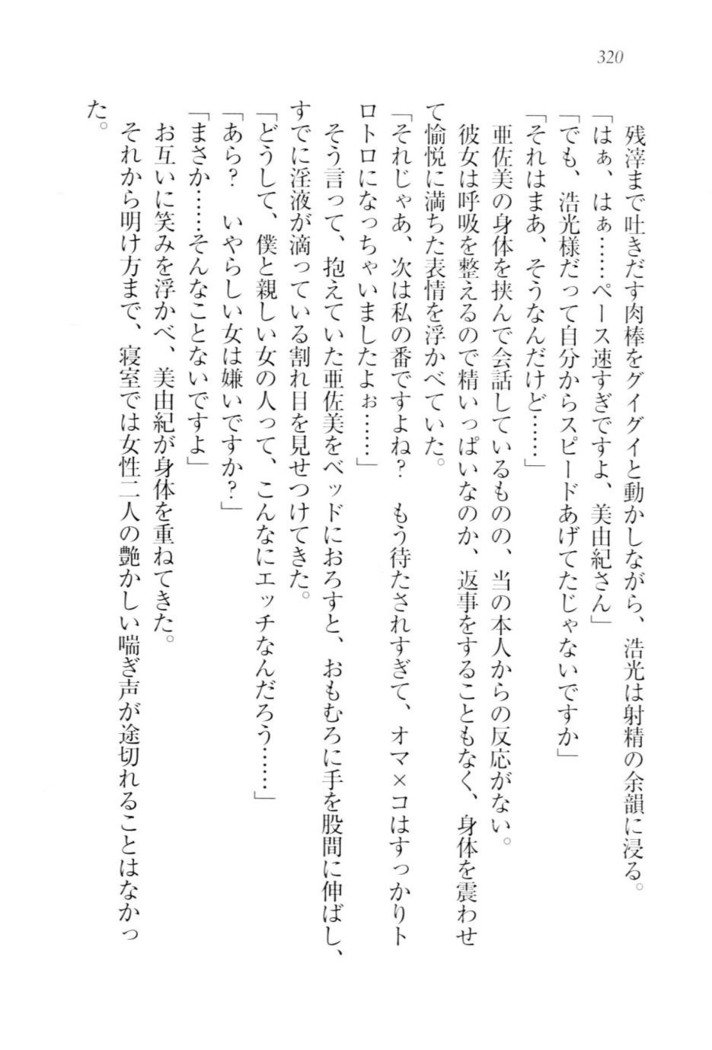 320
残滓まで吐きだす肉棒をグイグイと動かしながら、浩光は射精の余韻に浸る。
「はぁ、はぁ……ペース速すぎですよ、美由紀さん」
「でも、浩光様だって自分からスピードあげてたじゃないですか」
「それはまあ、そうなんだけど……」
亜佐美の身体を挟んで会話しているものの、当の本人からの反応がない。
彼女は呼吸を整えるので精いっぱいなのか、返事をすることもなく、身体を震わせ
て愉悦に満ちた表情を浮かべていた。
「それじゃあ、次は私の番ですよね？　もう待たされすぎて、オマ×コはすっかりト
ロトロになっちゃいましたよぉ……」
そう言って、抱えていた亜佐美をベッドにおろすと、おもむろに手を股間に伸ばし、
すでに淫液が滴っている割れ目を見せつけてきた。
「どうして、僕と親しい女の人って、こんなにエッチなんだろう……」
「あら？　いやらしい女は嫌いですか？」
「まさか……そんなことないですよ」
お互いに笑みを浮かべ、美由紀が身体を重ねてきた。
それから明け方まで、寝室では女性二人の艶かしい喘ぎ声が途切れることはなかっ
た。